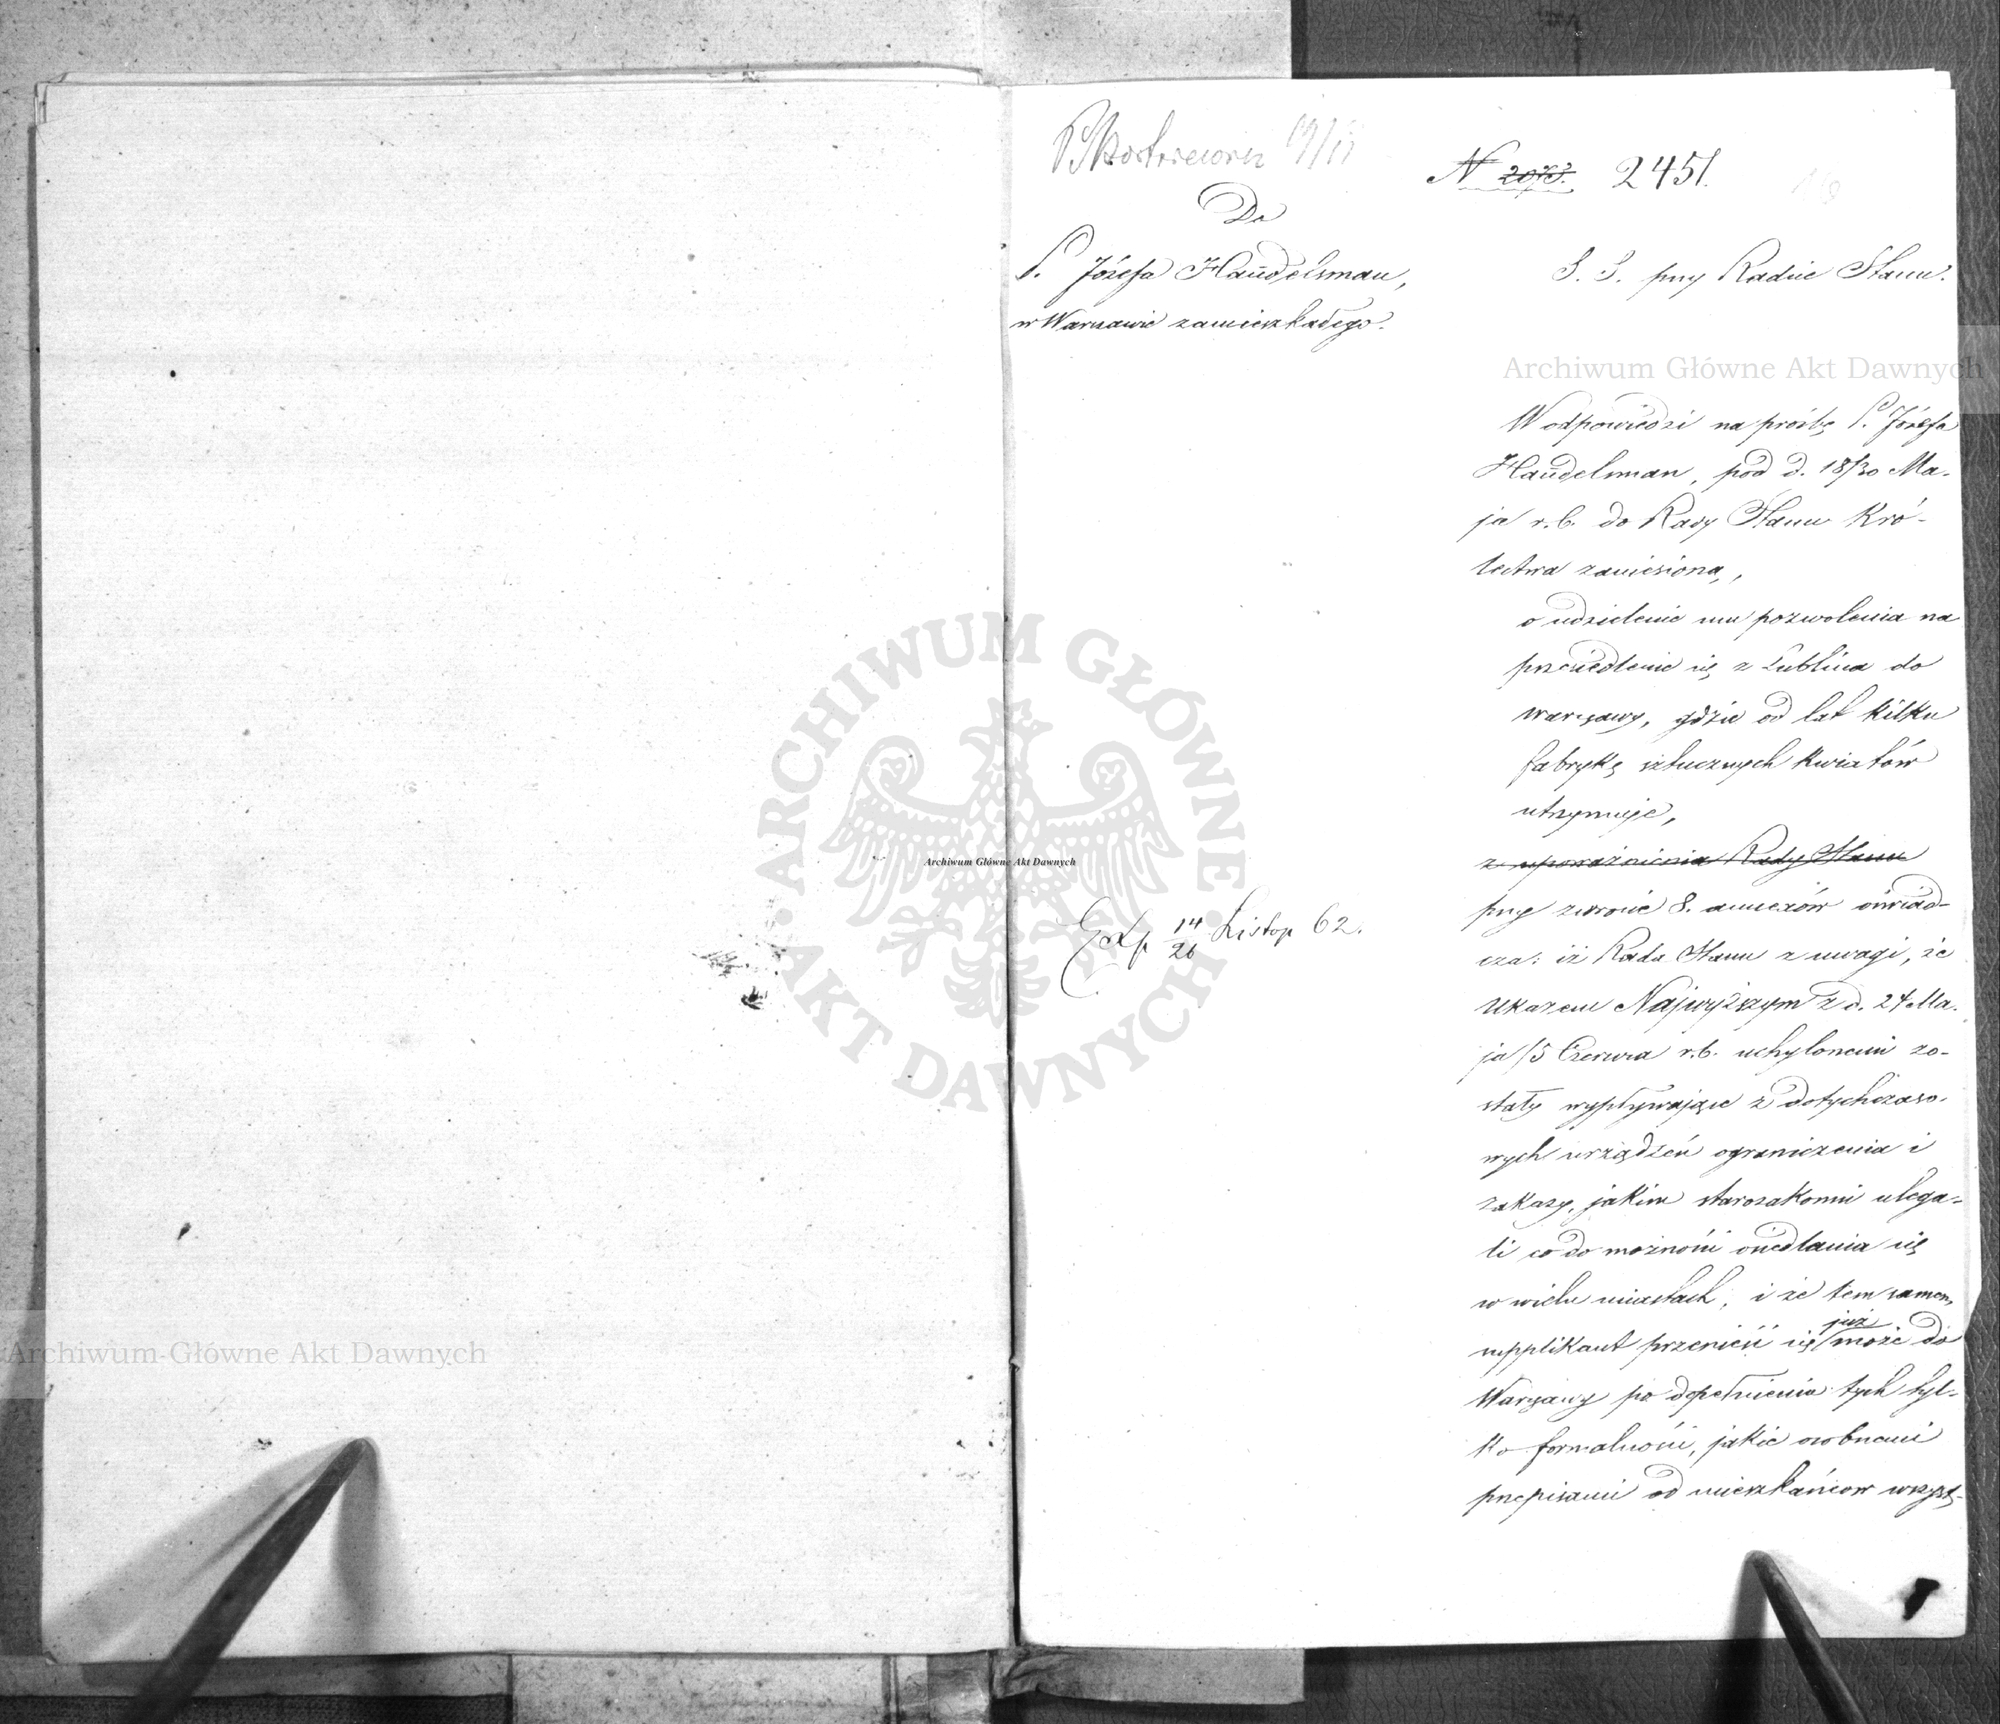 Do
P. Józefa Handelsman,
w Warszawie zamieszkałego.
Exp 14/26 Listop 62.
N 2078. 2451.
S. S. przy Radzie Stanu.
W odpowiedzi na prośbę P. Józefa
Handelsman, pod d. 18/30 Ma-
ja r. b. do Rady Stanu Kró-
lestwa zaniesioną,
o udzielenie mu pozwolenia na
przesiedlenie się z Lublina do
Warszawy, gdzie od lat kilku
fabrykę sztucznych kwiatów
utrzymuje,
z upoważnienia Rady Stanu
przy zwrocie 8. annexów oświad-
cza: iż Rada Stanu z uwagi, że
Ukazem Najwyższym z d. 24 Ma-
ja/5 Czerwca r. b. uchylonemi zo-
stały wypływające z dotychczaso-
wych urządzeń ograniczenia i
zakazy, jakim starozakonni ulega-
li co do możności osiedlania się
w wielu miastach, i że tem samem,
supplikant przenieść się już może do
Warszawy po dopełnieniu tych tyl-
ko formalności, jakie osobnemi
przepisami od mieszkańców wszyst-
Archiwum Główne Akt Dawnych
Archiwum Główne Akt Dawnych
Archiwum Główne Akt Dawnych
ARCHIWUM GŁÓWNE
AKT DAWNYCH